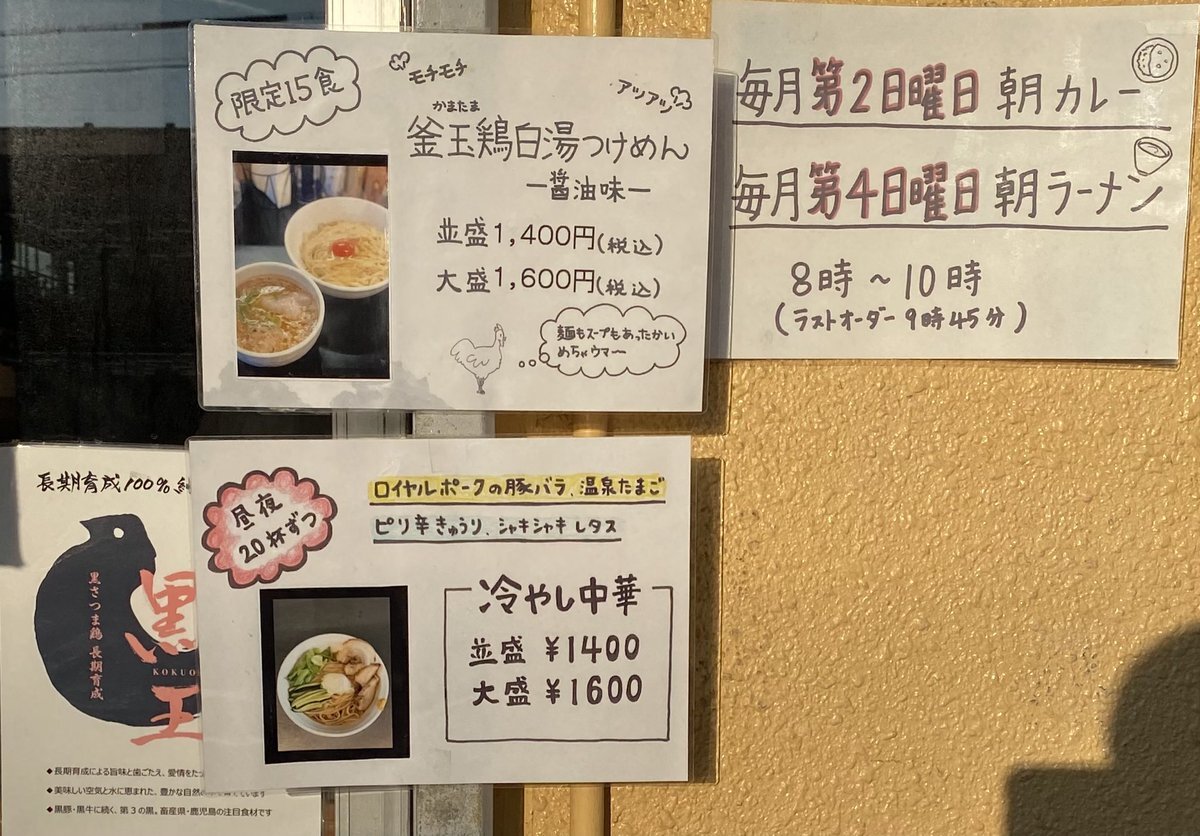 限定15食
モチモチ
アツアツ
かまたま
釜玉鶏白湯つけめん
ー醤油味ー
並盛1,400円(税込)
大盛1,600円(税込)
麺もスープもあったかい
めちゃウマ〜
毎月第2日曜日 朝カレー
毎月第4日曜日 朝ラーメン
8時〜10時
(ラストオーダー9時45分)
昼夜
20杯ずつ
ロイヤルポークの豚バラ、温泉たまご
ピリ辛きゅうり、シャキシャキレタス
冷やし中華
並盛 ¥1400
大盛 ¥1600
長期育成100%
黒さつま鶏 長期育成
黒王
KOKUO
◆長期育成による旨味と歯ごたえ、愛情をた
◆美味しい空気と水に恵まれた、豊かな自然
◆黒豚・黒牛に続く、第3の黒。畜産県・鹿児島の注目食材です